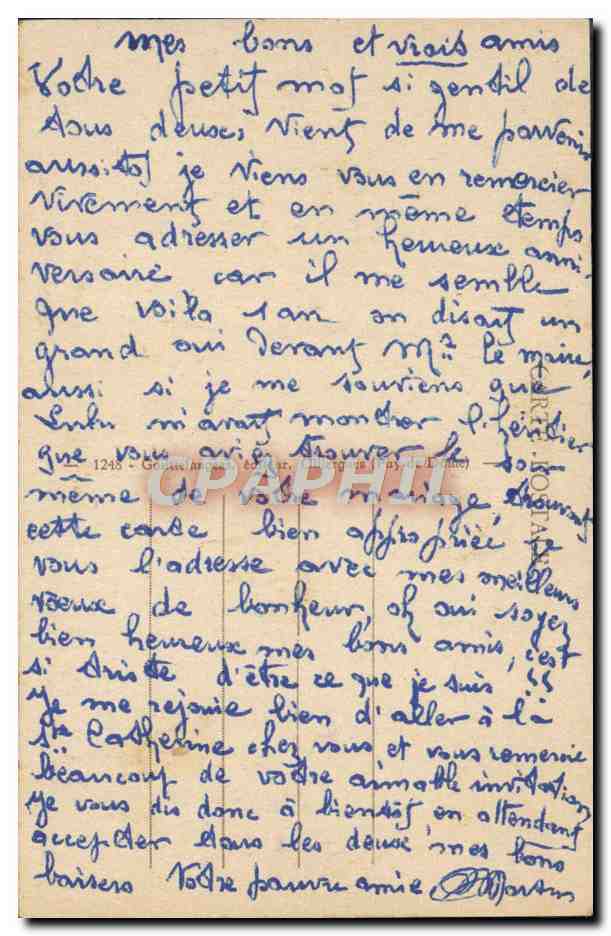 mes bons et vrais amis
Votre petit mot si gentil de
tous deuxes vient de me parvenir
aussitot je viens vous en remercier
vivement et en même temps
vous adresser un heureux anni-
versaire car il me semble
que voila 1 an on disait un
grand oui devant Mr le maire,
aussi si je me souviens que
Lulu m'avait montrer l'héritier
que vous aviez trouver le soir
1248 - édit
CARTE POSTALE
CPAPHIL
même de votre mariage, trouvant
cette carte bien appropriée je
vous l'adresse avec mes meilleurs
voeux de bonheur, oh oui soyez
bien heureux mes bons amis, c'est
si triste d'être ce que je suis !!
Je me rejouie bien d'aller à là
Ste Catherine chez vous et vous remercie
beaucoup de votre aimable invitation
Je vous dis donc à bientôt en attendant
accepter tous les deux, mes bons
baisers Votre pauvre amie